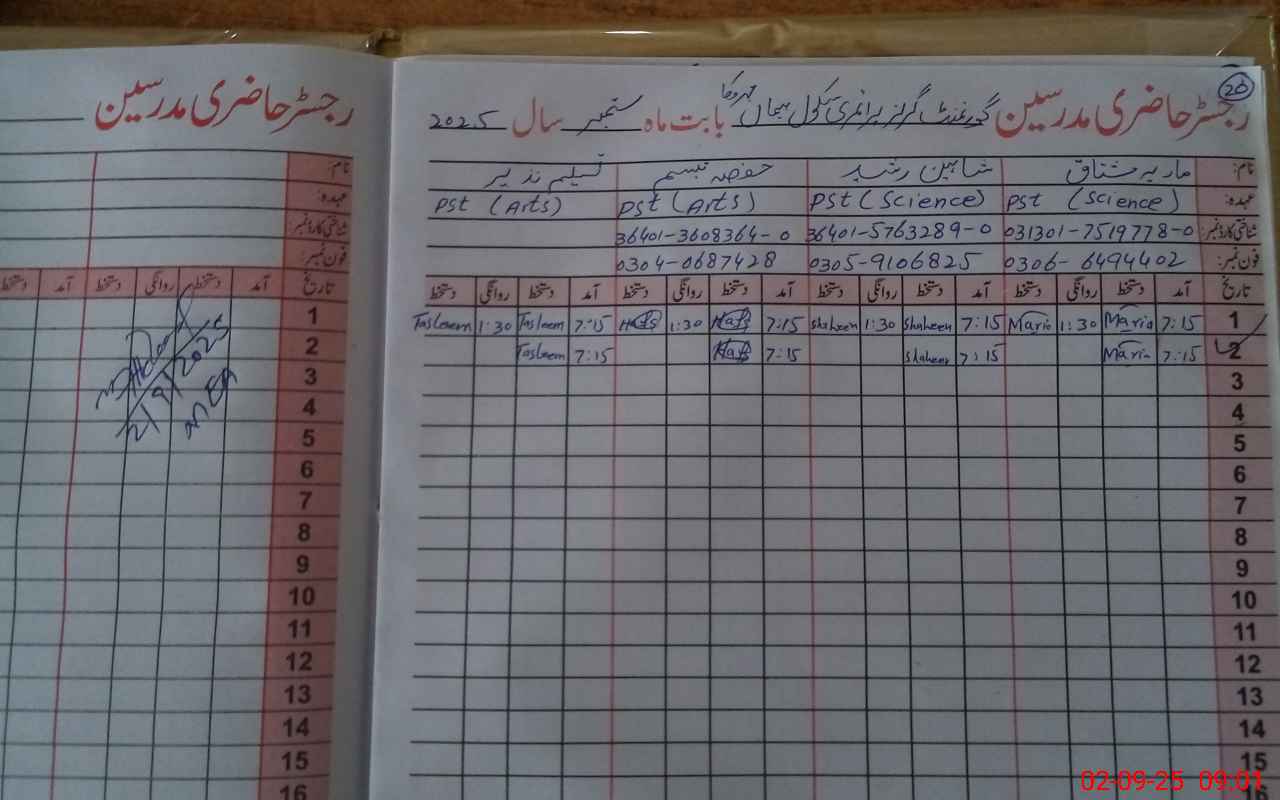 رجسٹر حاضری مدرسین گورنمنٹ گرلز پرائمری سکول بابت ماہ ستمبر سال 2025
26
نام: ماریہ مشتاق شاہین رشید حفصہ تبسم تسلیم نذیر
عہدہ: PST (Science) PST (Science) PST (Arts) PST (Arts)
شناختی کارڈ نمبر: 031301-7519778-0 36401-5763289-0 36401-3608364-0
فون نمبر: 0306-6494402 0305-9106825 0304-0687428
تاریخ آمد دستخط روانگی دستخط آمد دستخط روانگی دستخط آمد دستخط روانگی دستخط آمد دستخط روانگی دستخط
1 7:15 Maria 1:30 Maria 7:15 Shaheen 1:30 Shaheen 7:15 Hafs 1:30 Hafs 7:15 Tasleem 1:30 Tasleem
2 7:15 Maria 7:15 Shaheen 7:15 Hafs 7:15 Tasleem
3
4
5
6
7
8
9
10
11
12
13
14
15
16
رجسٹر حاضری مدرسین
نام:
عہدہ:
شناختی کارڈ نمبر:
فون نمبر:
تاریخ آمد دستخط روانگی دستخط آمد دستخط
1
2
3
4
5
6
7
8
9
10
11
12
13
14
15
16
2/9/2025
MEA
02-09-25 09:01